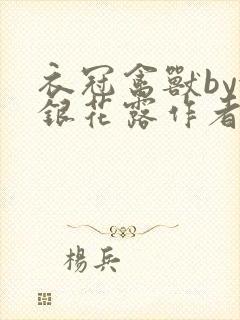 衣冠禽獸by
銀花露作者
楊兵